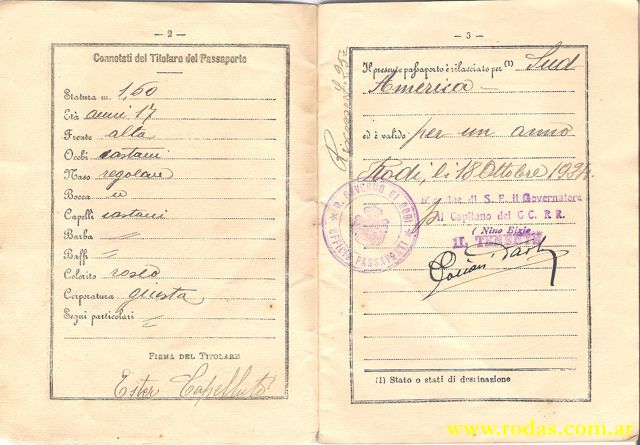 — 2 —
Connotati del Titolare del Passaporto
Statura m. 1,60
Età anni 17
Fronte alta
Occhi castani
Naso regolare
Bocca "
Capelli castani
Barba =
Baffi =
Colorito roseo
Corporatura giusta
Segni particolari =
FIRMA DEL TITOLARE
Ester Capelluto
— 3 —
Il presente passaporto è rilasciato per (1) Sud
America —
ed è valido per un anno
Rodi, li 18 Ottobre 1934
R. GOVERNO DI RODI
UFFICIO PASSAPORTI
di S. E. il Governatore
Il Capitano dei CC. RR.
( Nino Bixio
IL TENENTE
(1) Stato o stati di destinazione
www.rodas.com.ar